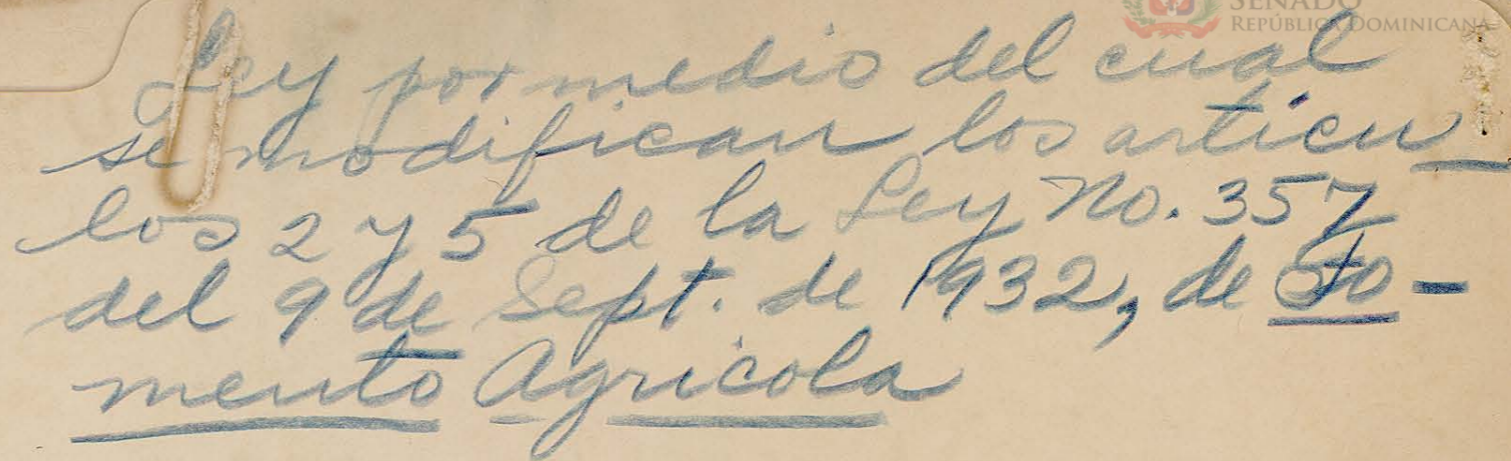 SENADO
REPÚBLICA DOMINICANA
Ley por medio del cual
se modifican los articu_
los 2 y 5 de la Ley No. 357
del 9 de Sept. de 1932, de Fo-
mento Agricola